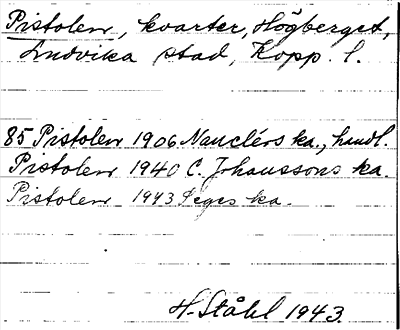 Pistolen, kvarter, Högberget,
Ludvika stad, Kopp. l.
85 Pistolen 1906 Nauclérs ka., handl.
Pistolen 1940 C. Johanssons ka.
Pistolen 1943 Seges ka.
H. Ståhl 1943.